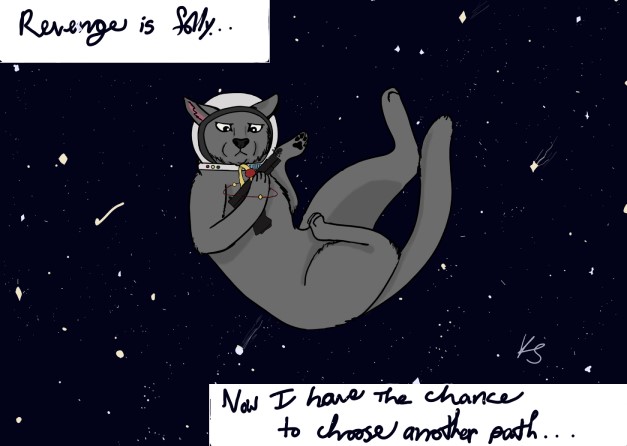 Revenge is folly..
Now I have the chance
to choose another path...
KS